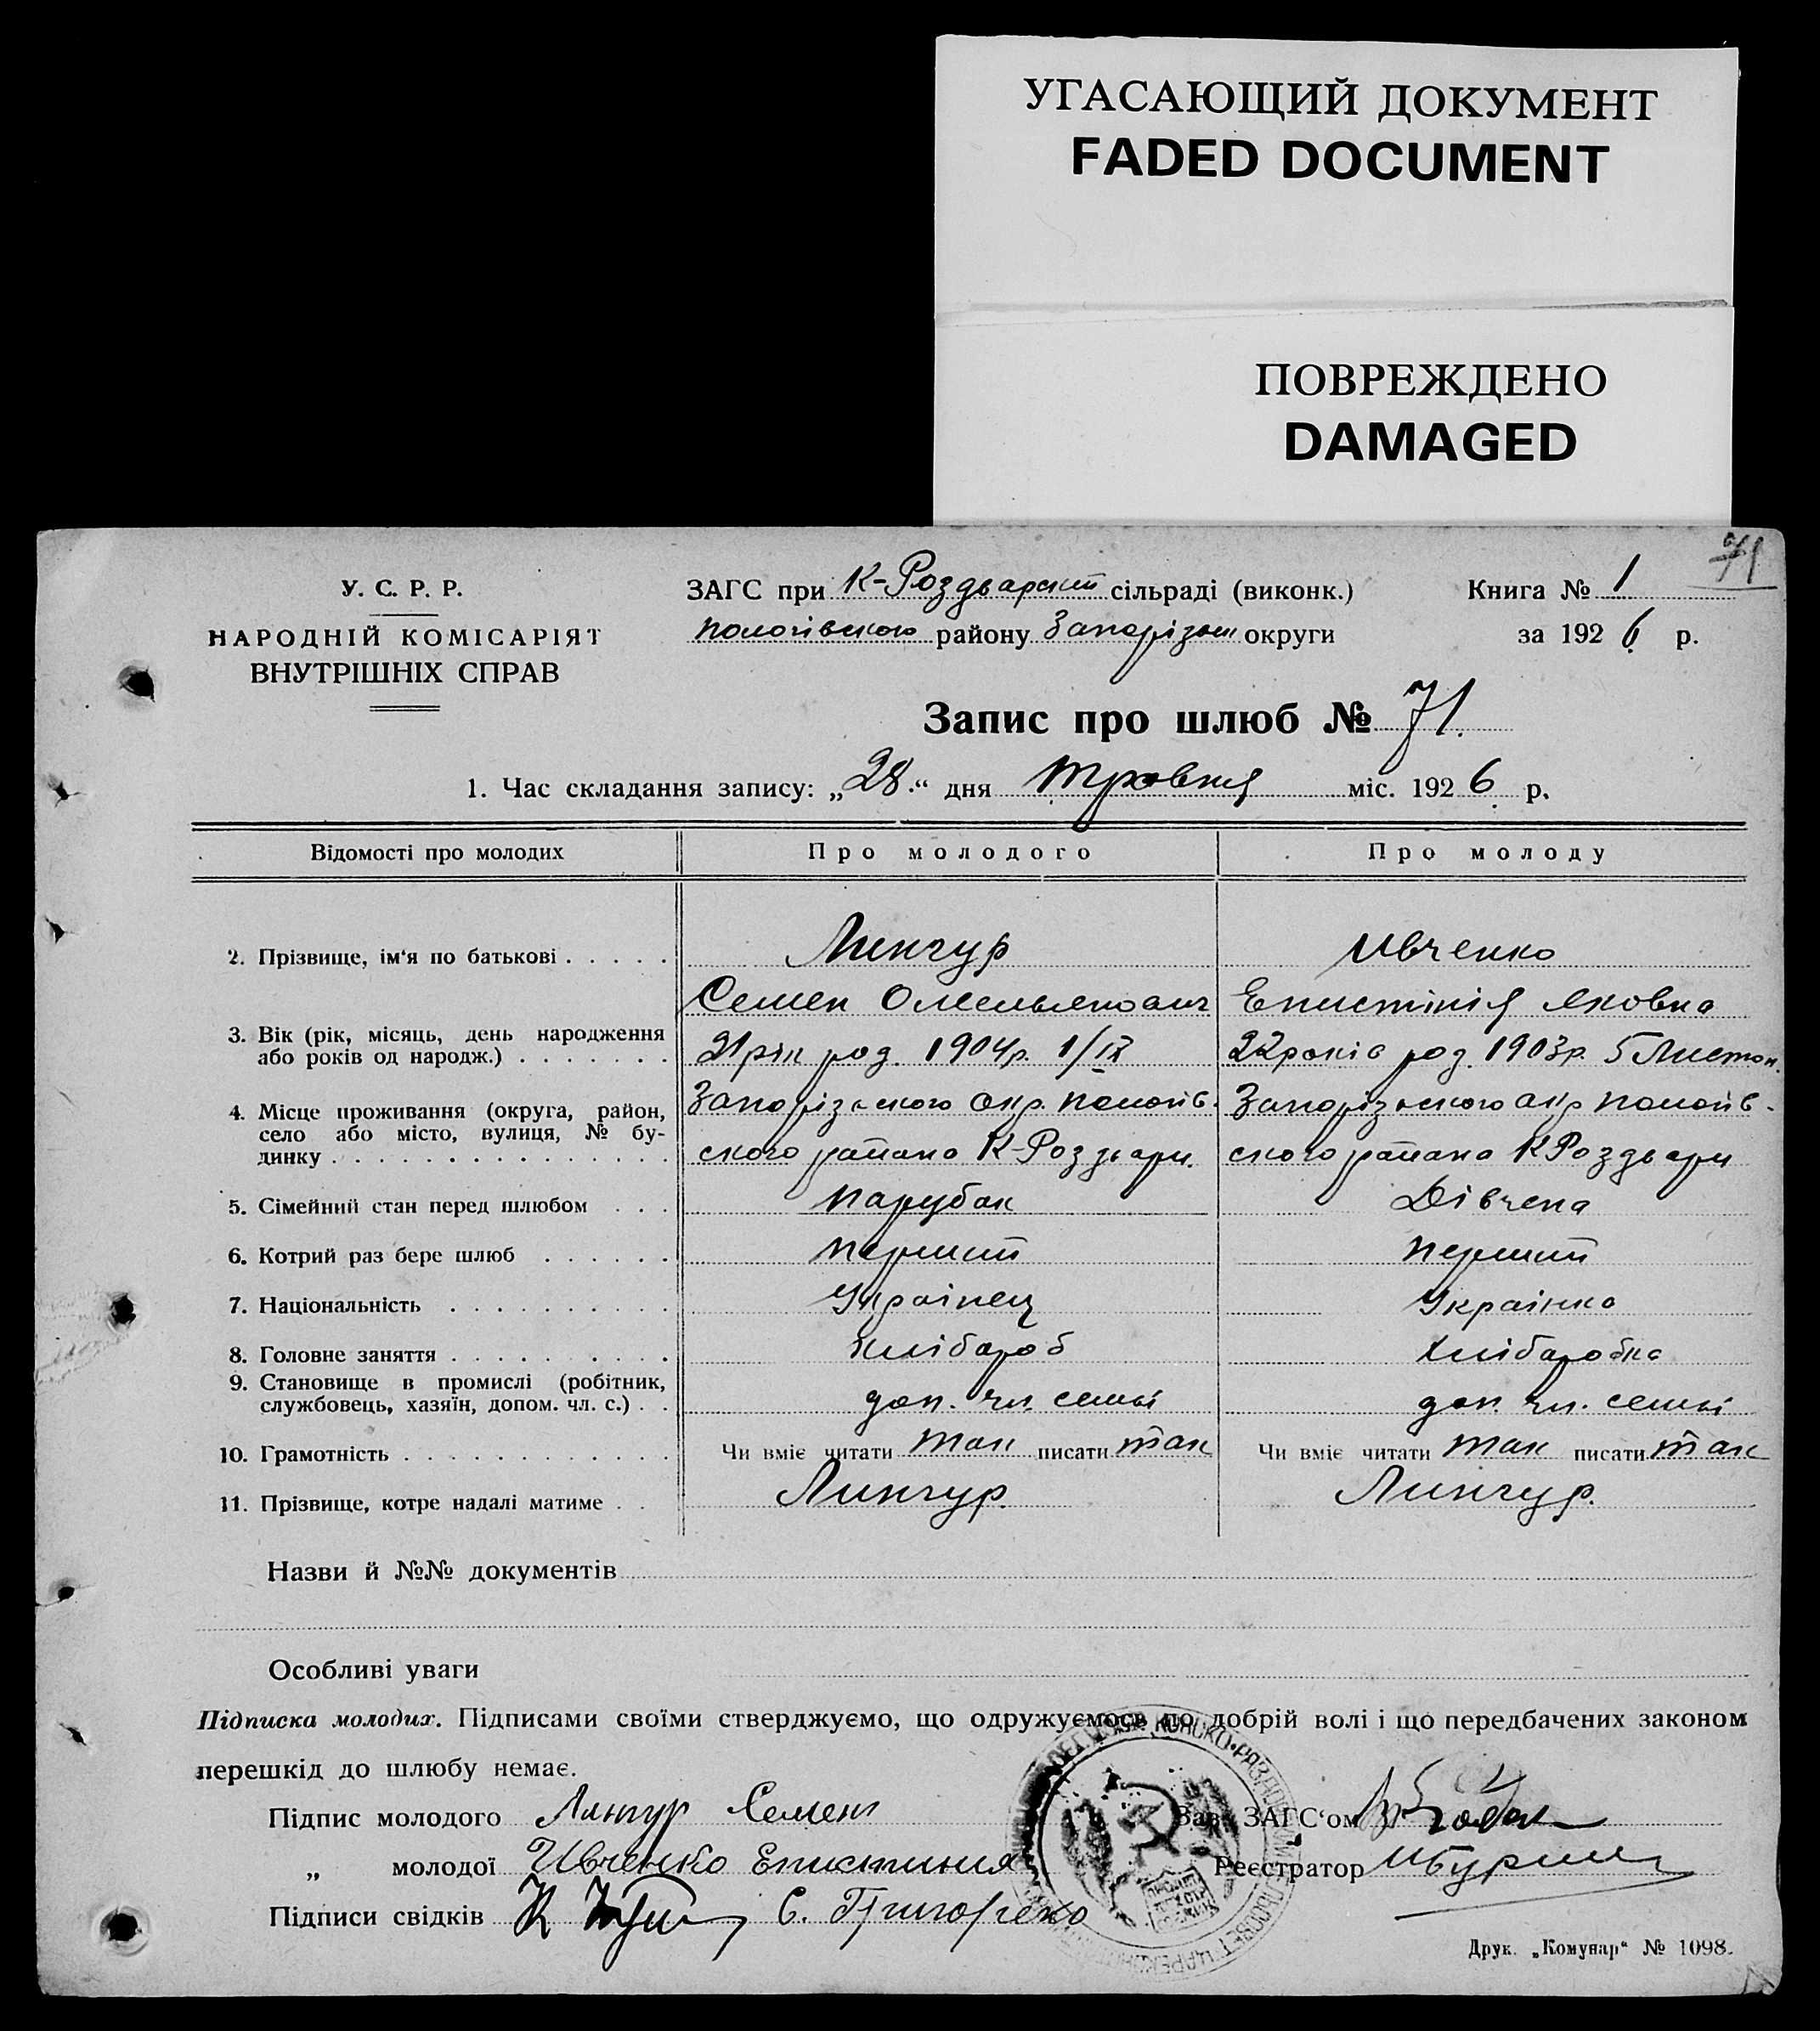 УГАСАЮЩИЙ ДОКУМЕНТ
FADED DOCUMENT
ПОВРЕЖДЕНО
DAMAGED
71
У. С. Р. Р.
НАРОДНІЙ КОМІСАРІЯТ
ВНУТРІШНІХ СПРАВ
ЗАГС при К-Роздварский сільраді (виконк.)
Пологівського району Запорізьк округи
Книга № 1
за 1926 р.
Запис про шлюб № 71.
1. Час складання запису: „28.“ дня Травня міс. 1926 р.
Відомості про молодих
Про молодого
Про молоду
2. Прізвище, ім'я по батькові . . . . .
Линчур
Ивченко
Семен Омельянович
Епистінія Яковна
3. Вік (рік, місяць, день народження
або років од народж.) . . . . . . .
21 рік род. 1904р. 1/IX
22 років род. 1903р. 5 Листоп.
4. Місце проживання (округа, район,
село або місто, вулиця, № бу-
динку . . . . . . . . . . . . . . .
Запорізького окр. Пологів-
ского района К-Роздари.
Запорізького окр Пологів-
ского района К Роздори
5. Сімейний стан перед шлюбом . . .
Парубок
Дівчена
6. Котрий раз бере шлюб . . . . . .
Перший
Перший
7. Національність . . . . . . . . . .
Українец
Українка
8. Головне заняття . . . . . . . . . .
Хлібароб
Хлібаробка
9. Становище в промислі (робітник,
службовець, хазяїн, допом. чл. с.) . .
доп. чл. семьі
доп. чл. семьі
10. Грамотність . . . . . . . . . . . .
Чи вміє читати так писати так
Чи вміє читати так писати так
11. Прізвище, котре надалі матиме . .
Линчур.
Линчур.
Назви й №№ документів
Особливі уваги
Підписка молодих. Підписами своїми стверджуємо, що одружуємось по добрій волі і що передбачених законом
перешкід до шлюбу немає.
Підпис молодого Линчур Семен
Зав. ЗАГС'ом
„ молодої Ивченко Епистиния
Реєстратор
Підписи свідків С. Григоренко
Друк. „Комунар“ № 1098.